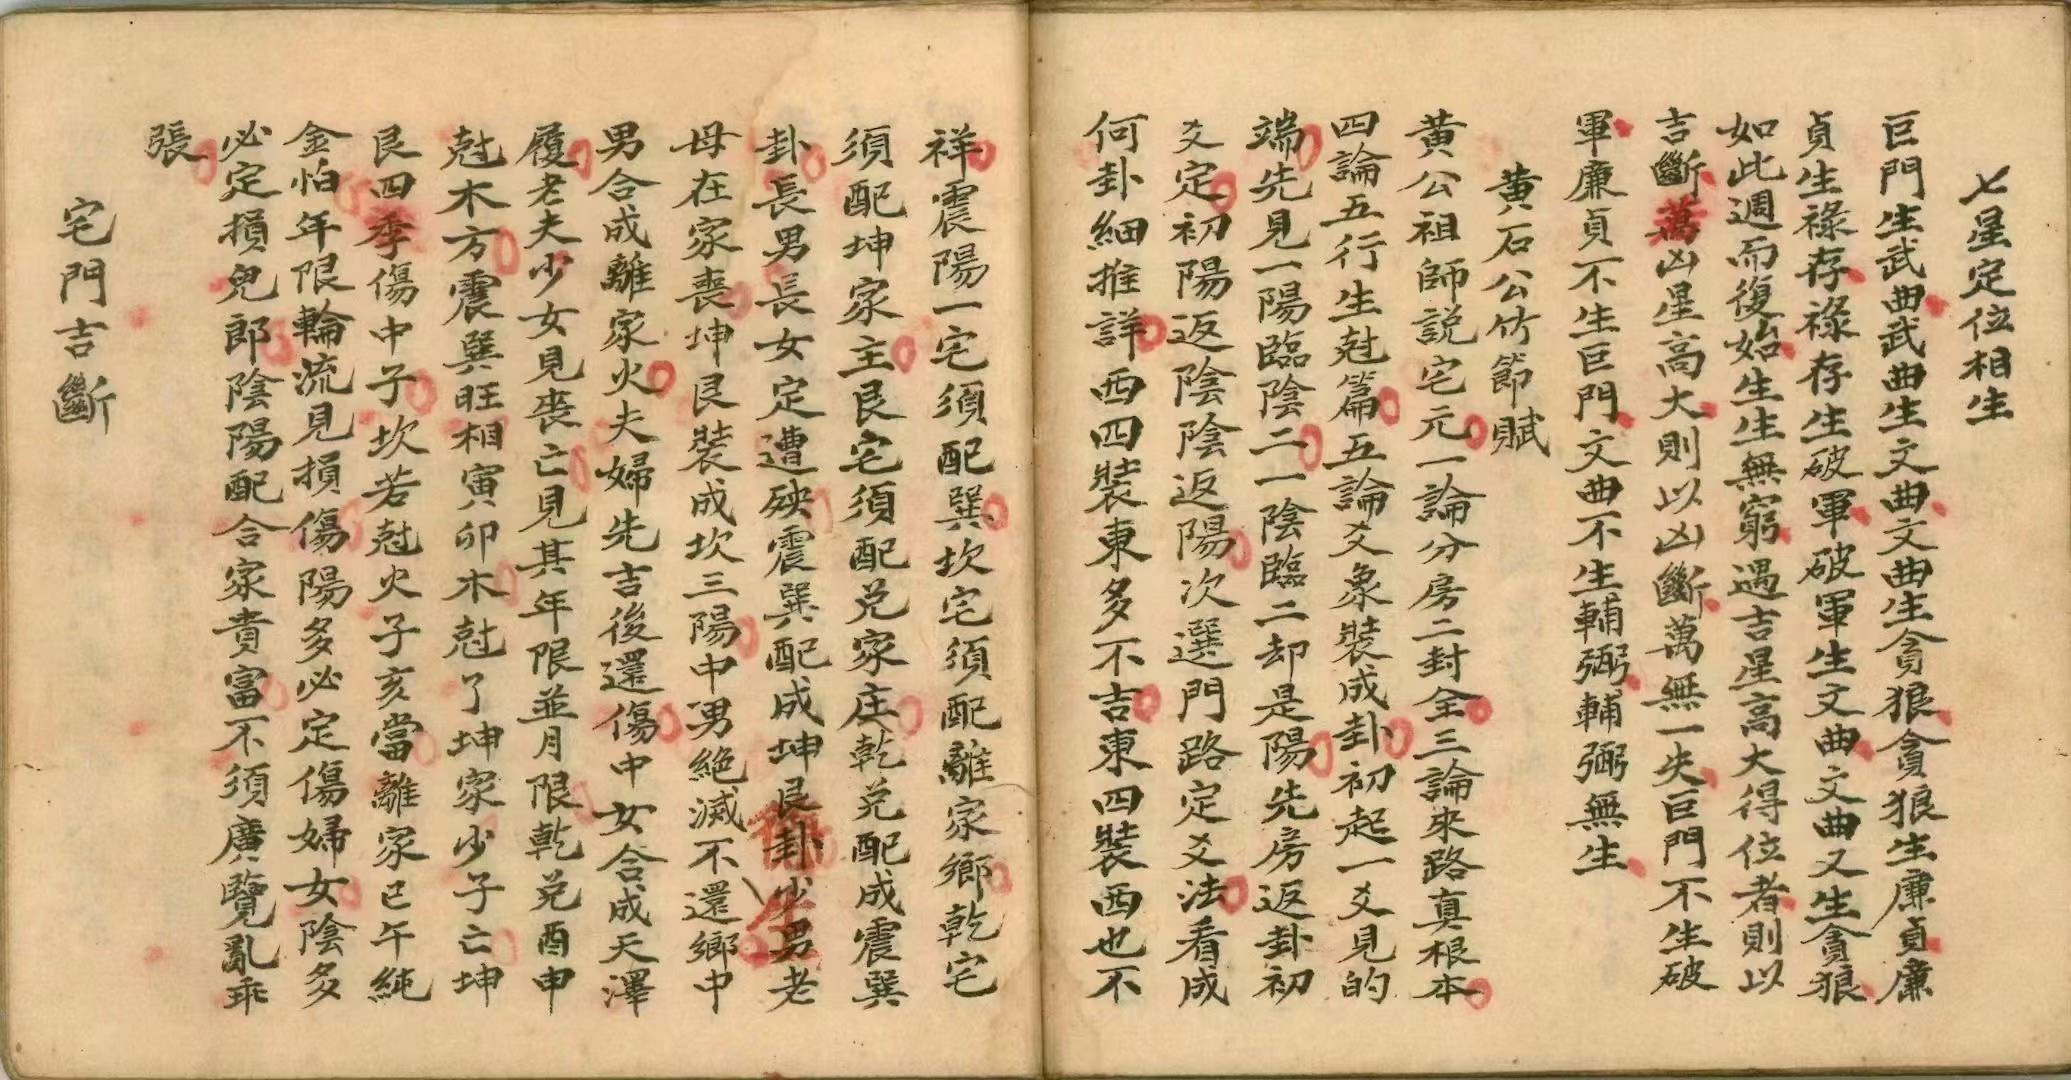 七星定位相生
巨門生武曲武曲生文曲文曲生貪狼貪狼生廉貞廉
貞生祿存祿存生破軍破軍生文曲文曲又生貪狼
如此週而復始生生無窮遇吉星高大得位者則以
吉斷萬凶星高大則以凶斷萬無一失巨門不生破
軍廉貞不生巨門文曲不生輔弼輔弼無生
黃石公竹節賦
黃公祖師説宅元一論分房二封全三論來路真根本
四論五行生尅篇五論爻象裝成卦初起一爻見的
端先見一陽臨陰二一陰臨二却是陽先房返卦初
爻定初陽返陰陰返陽次選門路定爻法看成
何卦細推詳西四裝東多不吉東四裝西也不
祥震陽一宅須配巽坎宅須配離家鄉乾宅
須配坤家主艮宅須配兑家庄乾兑配成震巽
卦長男長女定遭殃震巽配成坤艮卦少男老
母在家喪坤艮裝成坎三陽中男絶滅不還鄉中
男合成離家火夫婦先吉後還傷中女合成天澤
履老夫少女見喪亡見其年限並月限乾兑酉申
尅木方震巽旺相寅卯木尅了坤家少子亡坤
艮四季傷中子坎若尅火子亥當離家巳午純
金怕年限輪流見損傷陽多必定傷婦女陰多
必定損兒郎陰陽配合家貴富不須廣覽亂乖
張
宅門吉斷